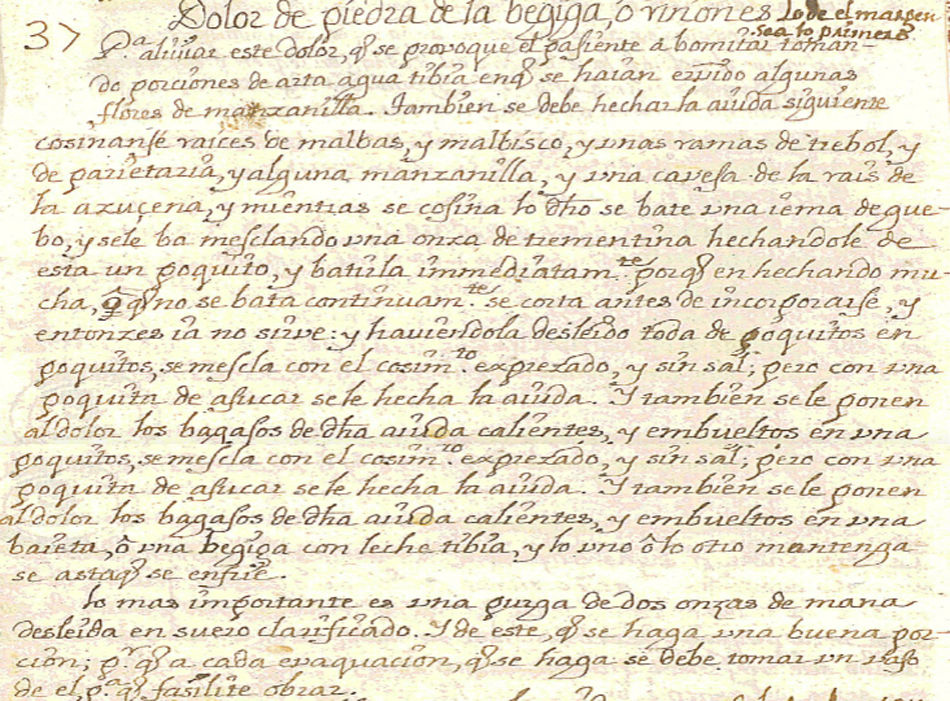 Dolor de piedra de la begiga, ô riñones Lo de el margen
37 sea lo primero
P.ª aliuiar este dolor, q̃ se provoque el pasiente a bomitar toman-
do porciones de arta agua tibia enq̃ se haian ervido algunas
flores de manzanilla. Tambien se debe hechar la aiuda siguiente
cosinanse raices de malbas, y malbisco, y vnas ramas de trebol, y
de parietaria, y alguna manzanilla, y vna cavesa de la rais de
la azuçena, y mientras se cosina lo dho se bate vna iema de gue-
bo, y sele ba mesclando vna onza de trementina hechandole de
esta un poquito, y batirla immediatam.te porq̃ en hechando mu-
cha, q̃ no se bata continuam.te se corta antes de incorporarse, y
entonzes ia no sirve: y haviendola desleido toda de poquitos en
poquitos, se mescla con el cosim.to exprezado, y sin sal; pero con vna
poquita de asucar sele hecha la aiuda. Y tambien sele ponen
al dolor los bagasos de dha aiuda calientes, y embueltos en vna
poquitos, se mescla con el cosim.to exprezado, y sin sal; pero con vna
poquita de asucar sele hecha la aiuda. Y tambien sele ponen
al dolor los bagasos de dha aiuda calientes, y embueltos en vna
baieta, ô vna begiga con leche tibia, y lo vno ô lo otro mantenga
se astaq̃ se enfrie.
lo mas importante es vna purga de dos onzas de mana
desleida en suero clarificado. Y de este, q̃ se haga vna buena por-
cion; p.ª q̃ a cada evaquacion, q̃ se haga se debe tomar vn vaso
de el, p.ª q̃ fasilite obrar.